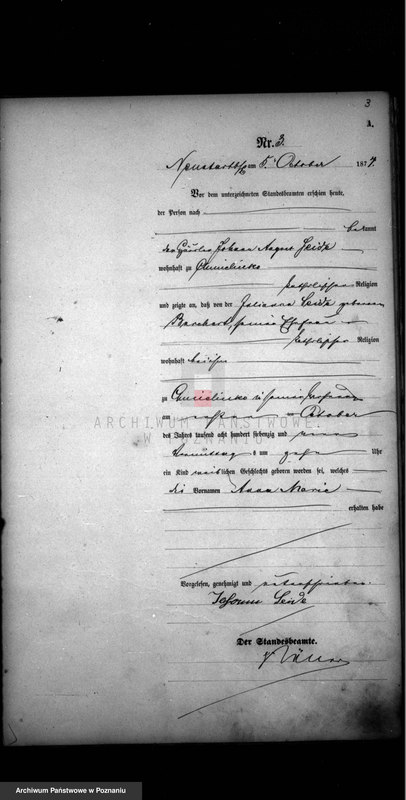 3
A.
Nr. 3.
am 5. October 1874.
Vor dem unterzeichneten Standesbeamten erschien heute,
der Person nach
bekannt
Johann August Seide
wohnhaft zu Chmielinko
katholischer Religion
und zeigte an, daß von der Julianna Seide geborenen
seiner Ehefrau
katholischer Religion
wohnhaft bei ihm
zu Chmielinko in seiner
am ersten October
des Jahres tausend acht hundert siebenzig und
Vormittag s um zehn Uhr
ein Kind weiblichen Geschlechts geboren worden sei, welches
die Vornamen Anna Marie
erhalten habe
Vorgelesen, genehmigt und unterschrieben.
Johann Seide
Der Standesbeamte.
ARCHIWUM PAŃSTWOWE
W POZNANIU
Archiwum Państwowe w Poznaniu